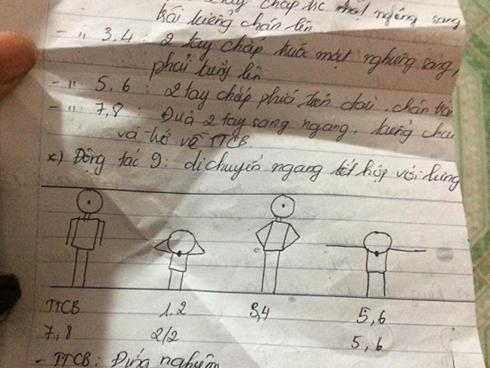 trái tưởng chân lên
- " 3,4: 2 tay chắp trước mặt nghiêng sang
phải lên
- " 5,6: 2 tay chắp phía trên đầu, chân
- " 7,8: Đưa 2 tay sang ngang,
và trở về TTCB
x) Động tác 9: di chuyển ngang kết hợp với lưng
TTCB 1.2 3,4 5,6
7,8 2/2 5,6
- TTCB: Đứng nghiêm